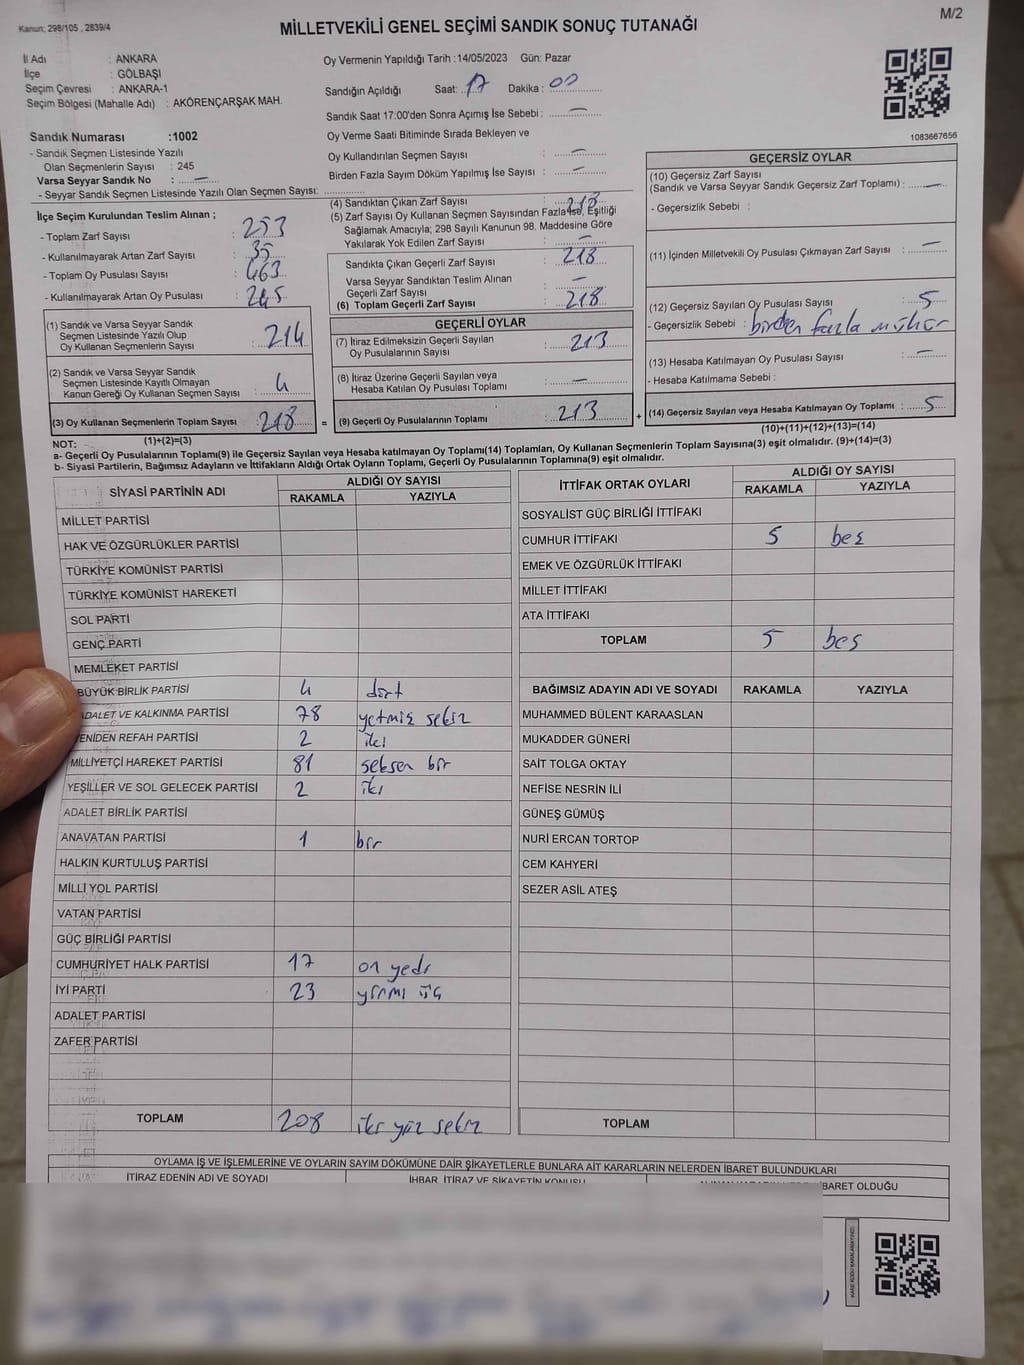 Kanun; 298/105 , 2839/4
MİLLETVEKİLİ GENEL SEÇİMİ SANDIK SONUÇ TUTANAĞI
M/2
İl Adı : ANKARA
İlçe : GÖLBAŞI
Seçim Çevresi : ANKARA-1
Seçim Bölgesi (Mahalle Adı) : AKÖRENÇARŞAK MAH.
Sandık Numarası :1002
- Sandık Seçmen Listesinde Yazılı
Olan Seçmenlerin Sayısı : 245
Varsa Seyyar Sandık No : —
- Seyyar Sandık Seçmen Listesinde Yazılı Olan Seçmen Sayısı:
Oy Vermenin Yapıldığı Tarih :14/05/2023 Gün: Pazar
Sandığın Açıldığı Saat: 17 Dakika : 00
Sandık Saat 17:00'den Sonra Açımış İse Sebebi : —
Oy Verme Saati Bitiminde Sırada Bekleyen ve
Oy Kullandırılan Seçmen Sayısı : —
Birden Fazla Sayım Döküm Yapılmış İse Sayısı : —
1083667656
İlçe Seçim Kurulundan Teslim Alınan ;
- Toplam Zarf Sayısı : 253
- Kullanılmayarak Artan Zarf Sayısı : 35
- Toplam Oy Pusulası Sayısı : 463
- Kullanılmayarak Artan Oy Pusulası : 245
(1) Sandık ve Varsa Seyyar Sandık
Seçmen Listesinde Yazılı Olup
Oy Kullanan Seçmenlerin Sayısı : 214
(2) Sandık ve Varsa Seyyar Sandık
Seçmen Listesinde Kayıtlı Olmayan
Kanun Gereği Oy Kullanan Seçmen Sayısı : 4
(3) Oy Kullanan Seçmenlerin Toplam Sayısı : 218
(1)+(2)=(3)
(4) Sandıktan Çıkan Zarf Sayısı : 218
(5) Zarf Sayısı Oy Kullanan Seçmen Sayısından Fazla İse, Eşitliği
Sağlamak Amacıyla; 298 Sayılı Kanunun 98. Maddesine Göre
Yakılarak Yok Edilen Zarf Sayısı : —
Sandıkta Çıkan Geçerli Zarf Sayısı : 218
Varsa Seyyar Sandıktan Teslim Alınan
Geçerli Zarf Sayısı : —
(6) Toplam Geçerli Zarf Sayısı : 218
GEÇERLİ OYLAR
(7) İtiraz Edilmeksizin Geçerli Sayılan
Oy Pusulalarının Sayısı : 213
(8) İtiraz Üzerine Geçerli Sayılan veya
Hesaba Katılan Oy Pusulası Toplamı : —
= (9) Geçerli Oy Pusulalarının Toplamı : 213 +
GEÇERSİZ OYLAR
(10) Geçersiz Zarf Sayısı
(Sandık ve Varsa Seyyar Sandık Geçersiz Zarf Toplamı) : —
- Geçersizlik Sebebi :
(11) İçinden Milletvekili Oy Pusulası Çıkmayan Zarf Sayısı : —
(12) Geçersiz Sayılan Oy Pusulası Sayısı : 5
- Geçersizlik Sebebi : birden fazla mühür
(13) Hesaba Katılmayan Oy Pusulası Sayısı : —
- Hesaba Katılmama Sebebi :
(14) Geçersiz Sayılan veya Hesaba Katılmayan Oy Toplamı : 5
(10)+(11)+(12)+(13)=(14)
NOT:
a- Geçerli Oy Pusulalarının Toplamı(9) ile Geçersiz Sayılan veya Hesaba Katılmayan Oy Toplamı(14) Toplamları, Oy Kullanan Seçmenlerin Toplam Sayısına(3) eşit olmalıdır. (9)+(14)=(3)
b- Siyasi Partilerin, Bağımsız Adayların ve İttifakların Aldığı Ortak Oyların Toplamı, Geçerli Oy Pusulalarının Toplamına(9) eşit olmalıdır.
SİYASİ PARTİNİN ADI ALDIĞI OY SAYISI
RAKAMLA YAZIYLA
MİLLET PARTİSİ
HAK VE ÖZGÜRLÜKLER PARTİSİ
TÜRKİYE KOMÜNİST PARTİSİ
TÜRKİYE KOMÜNİST HAREKETİ
SOL PARTİ
GENÇ PARTİ
MEMLEKET PARTİSİ
BÜYÜK BİRLİK PARTİSİ 4 dört
ADALET VE KALKINMA PARTİSİ 78 yetmiş sekiz
YENİDEN REFAH PARTİSİ 2 iki
MİLLİYETÇİ HAREKET PARTİSİ 81 seksen bir
YEŞİLLER VE SOL GELECEK PARTİSİ 2 iki
ADALET BİRLİK PARTİSİ
ANAVATAN PARTİSİ 1 bir
HALKIN KURTULUŞ PARTİSİ
MİLLİ YOL PARTİSİ
VATAN PARTİSİ
GÜÇ BİRLİĞİ PARTİSİ
CUMHURİYET HALK PARTİSİ 17 on yedi
İYİ PARTİ 23 yirmi üç
ADALET PARTİSİ
ZAFER PARTİSİ
TOPLAM 208 iki yüz sekiz
İTTİFAK ORTAK OYLARI ALDIĞI OY SAYISI
RAKAMLA YAZIYLA
SOSYALİST GÜÇ BİRLİĞİ İTTİFAKI
CUMHUR İTTİFAKI 5 beş
EMEK VE ÖZGÜRLÜK İTTİFAKI
MİLLET İTTİFAKI
ATA İTTİFAKI
TOPLAM 5 beş
BAĞIMSIZ ADAYIN ADI VE SOYADI RAKAMLA YAZIYLA
MUHAMMED BÜLENT KARAASLAN
MUKADDER GÜNERİ
SAİT TOLGA OKTAY
NEFİSE NESRİN İLİ
GÜNEŞ GÜMÜŞ
NURİ ERCAN TORTOP
CEM KAHYERİ
SEZER ASİL ATEŞ
TOPLAM
OYLAMA İŞ VE İŞLEMLERİNE VE OYLARIN SAYIM DÖKÜMÜNE DAİR ŞİKAYETLERLE BUNLARA AİT KARARLARIN NELERDEN İBARET BULUNDUKLARI
İTİRAZ EDENİN ADI VE SOYADI İHBAR, İTİRAZ VE ŞİKAYETİN KONUSU İBARET OLDUĞU